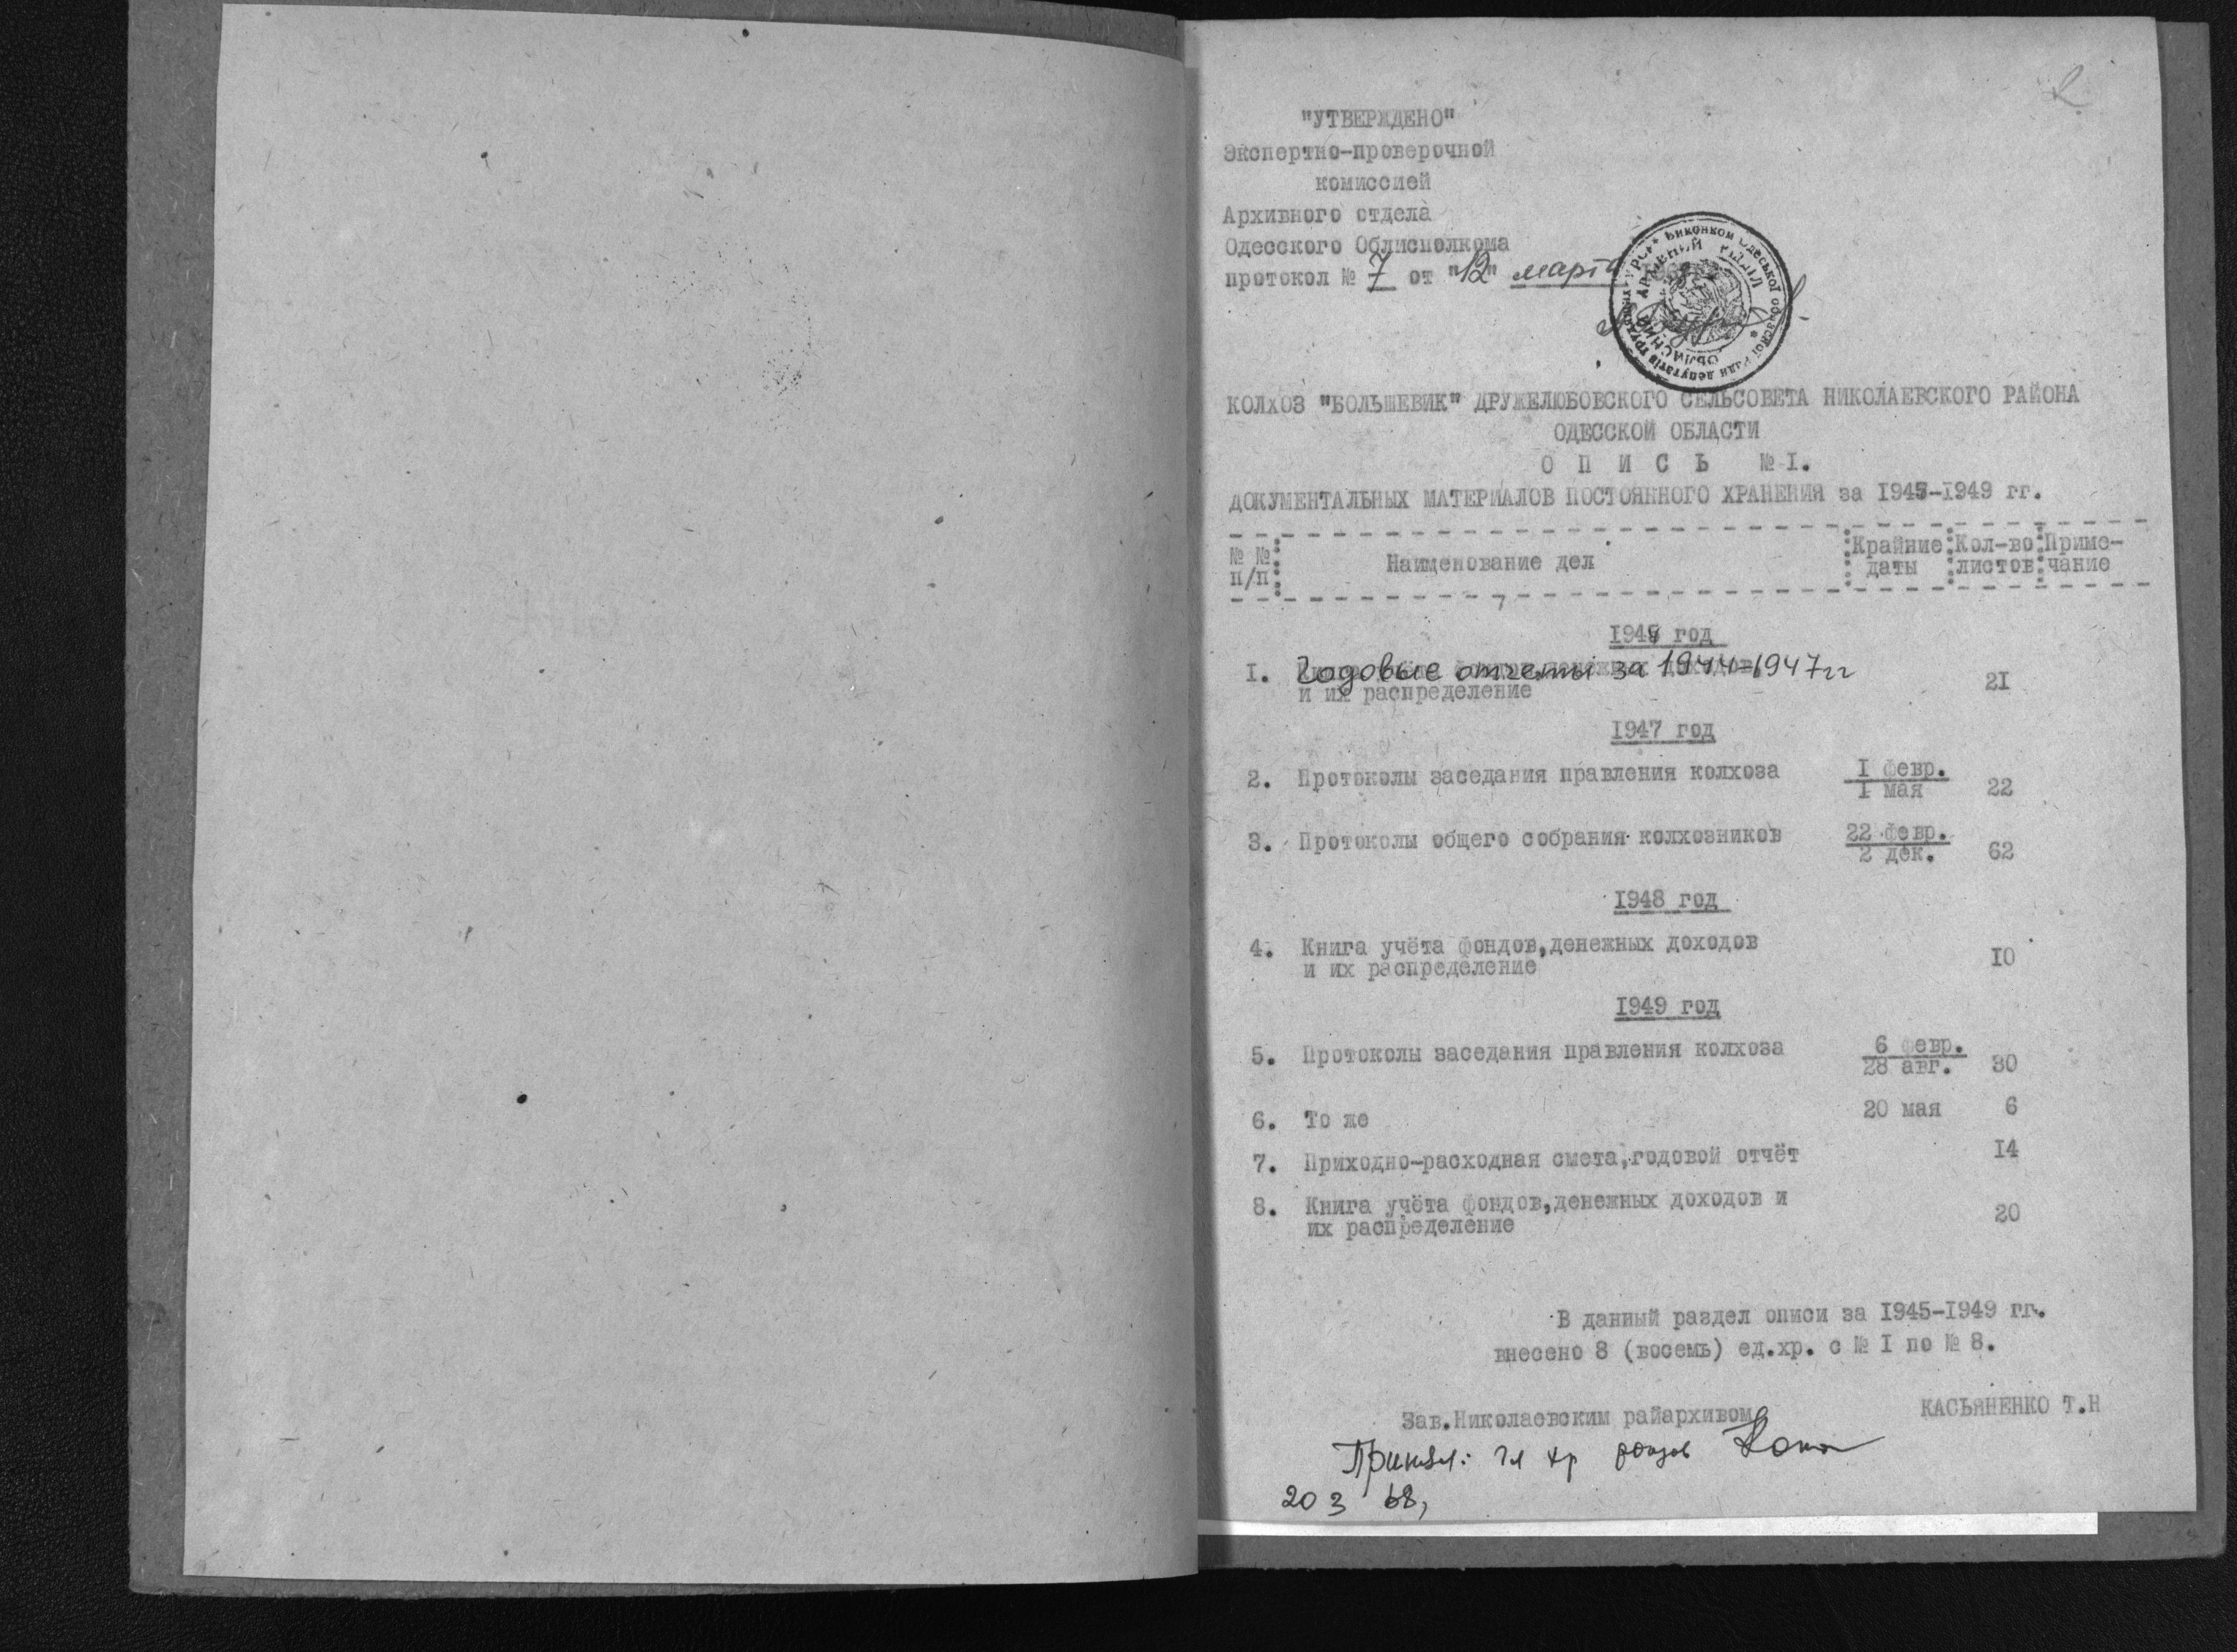 2
"УТВЕРЖДЕНО"
Экспертно-проверочной
комиссией
Архивного отдела
Одесского Облисполкома
протокол № 7 от "12" марта
АРХІВНИЙ ВІДДІЛ
ОБЛАСНИЙ
КОЛХОЗ "БОЛЬШЕВИК" ДРУЖЕЛЮБОВСКОГО СЕЛЬСОВЕТА НИКОЛАЕВСКОГО РАЙОНА
ОДЕССКОЙ ОБЛАСТИ
О П И С Ь № I.
ДОКУМЕНТАЛЬНЫХ МАТЕРИАЛОВ ПОСТОЯННОГО ХРАНЕНИЯ за 1945-1949 гг.
№ № Крайние Кол-во Приме-
п/п Наименование дел даты листов чание
1947 год
I. Годовые отчеты за 1944-1947 гг
и их распределение 2I
1947 год
2. Протоколы заседания правления колхоза I февр.
I мая 22
3. Протоколы общего собрания колхозников 22 февр.
2 дек. 62
1948 год
4. Книга учёта фондов,денежных доходов
и их распределение I0
1949 год
5. Протоколы заседания правления колхоза 6 февр.
28 авг. 30
6. То же 20 мая 6
7. Приходно-расходная смета,годовой отчёт I4
8. Книга учёта фондов,денежных доходов и
их распределение 20
В данный раздел описи за 1945-1949 гг.
внесено 8 (восемь) ед.хр. с № I по № 8.
Зав.Николаевским райархивом КАСЬЯНЕНКО Т.Н
Принял: Гл хр фондов
20 3 68,